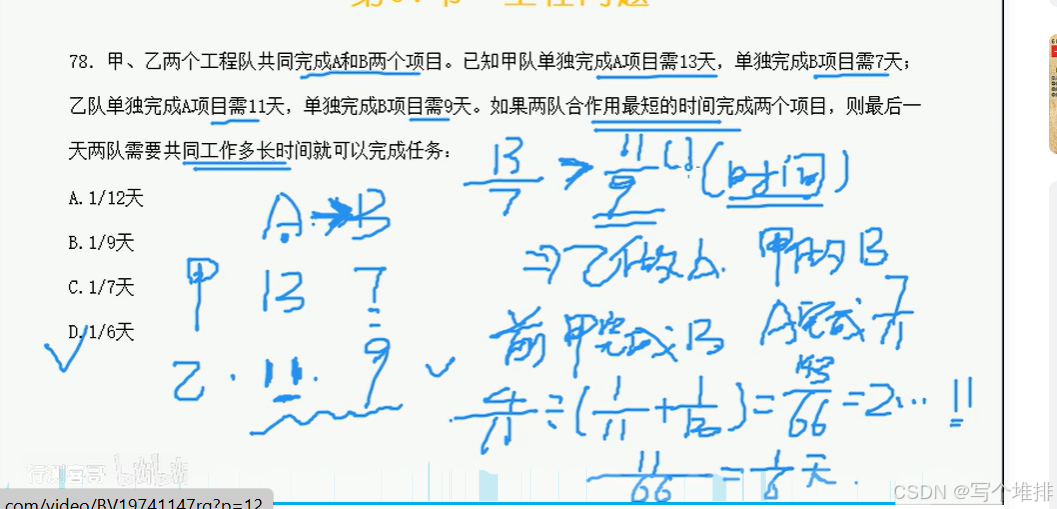 78. 甲、乙两个工程队共同完成A和B两个项目。已知甲队单独完成A项目需13天，单独完成B项目需7天；
乙队单独完成A项目需11天，单独完成B项目需9天。如果两队合作用最短的时间完成两个项目，则最后一
天两队需要共同工作多长时间就可以完成任务：
A.1/12天
B.1/9天
C.1/7天
D.1/6天
A → B
甲 13 7
乙 11 9
13/7 > 11/9 (时间)
⇒ 乙做A. 甲做B
前7 甲完成B A完成7/11
4/11 ÷ (1/11 + 1/13) = /66 = 2…11
11/66 = 1/6天
com/video/BV19741147rq?p=12
CSDN @写个堆排